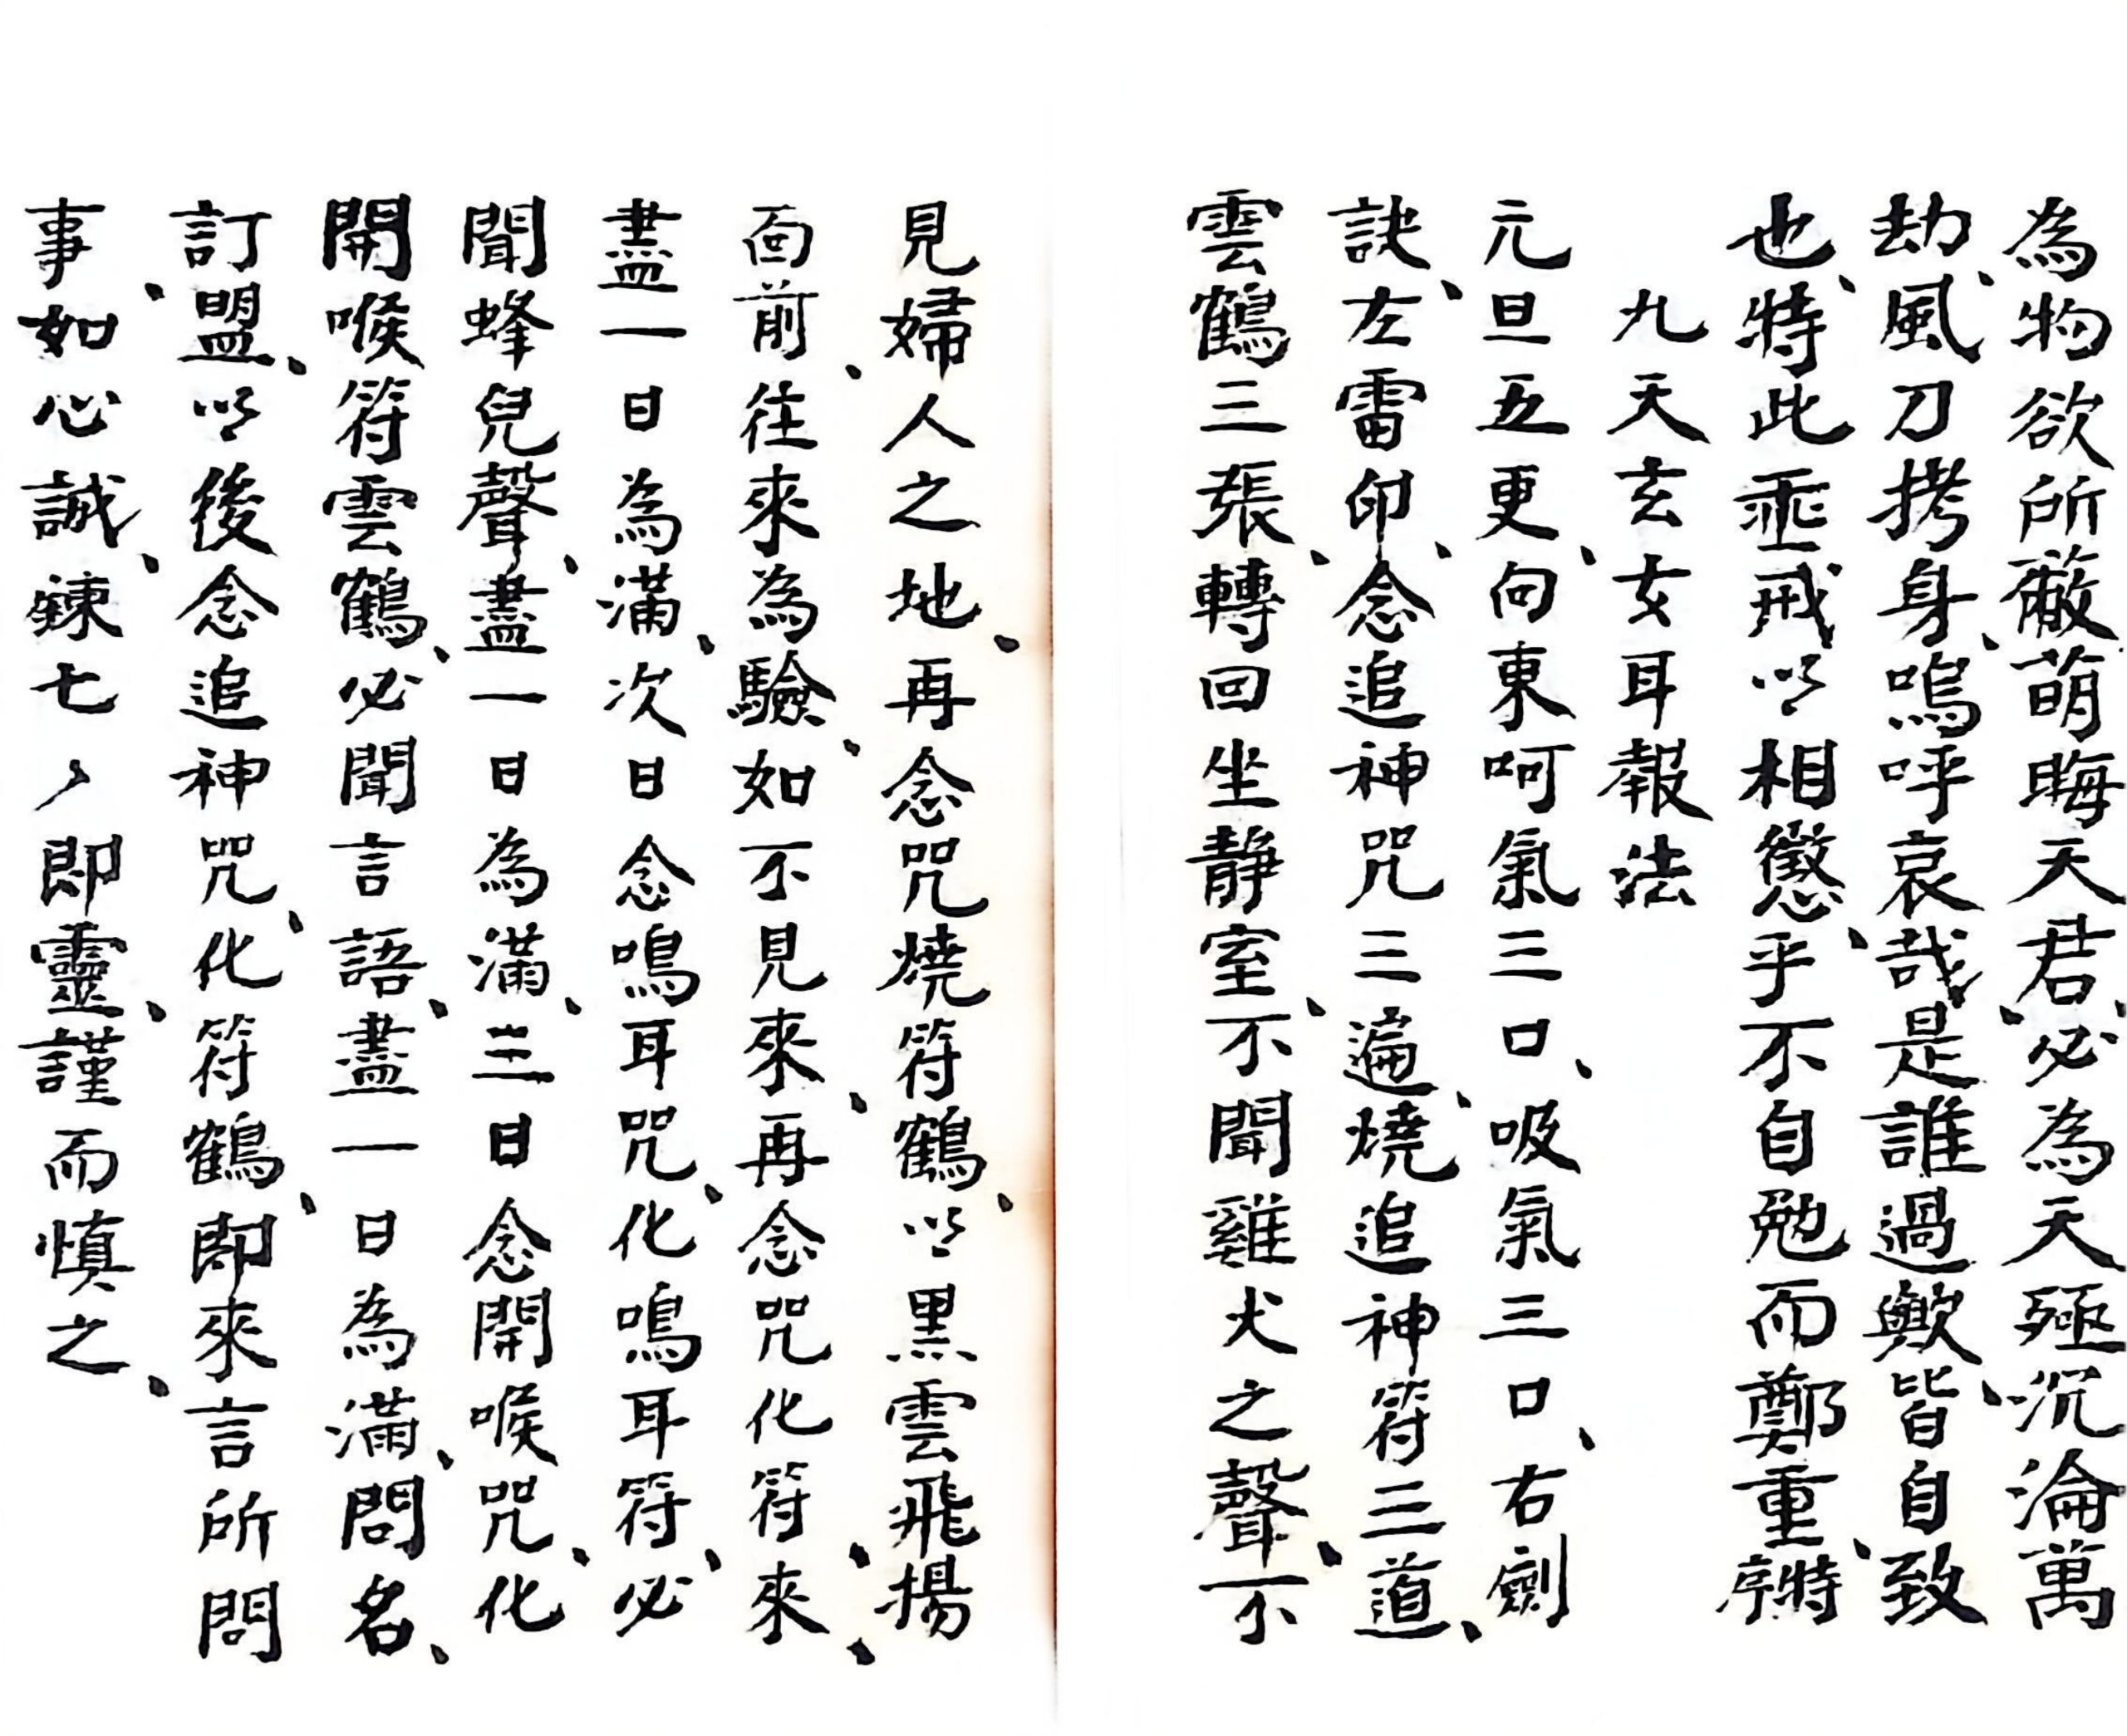 為物欲所蔽萌晦天君、必為天殛沉淪萬
劫、風刀拷身、嗚呼哀哉、是誰過歟、皆自致
也、特此垂戒以相懲、乎不自勉而鄭重、特序
九天玄女耳報法
元旦五更、向東呵氣三口、吸氣三口、右劍
訣、左雷印、念追神咒三遍、燒追神符三道、
雲鶴三張、轉回坐靜室、不聞雞犬之聲、不
見婦人之地、再念咒燒符鶴、以黑雲飛揚
面前、往來為驗、如不見來、再念咒化符、來、
盡一日為滿、次日念鳴耳咒、化鳴耳符、必
聞蜂兒聲、盡一日為滿、三日念開喉咒、化
開喉符雲鶴、必聞言語、盡一日為滿、問名、
訂盟、以後念追神咒、化符鶴、即來言所問
事、如心誠、鍊七〃即靈、謹而慎之、